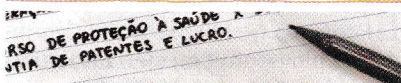 RSO DE PROTEÇÃO À SAÚDE X
NTIA DE PATENTES E LUCRO.